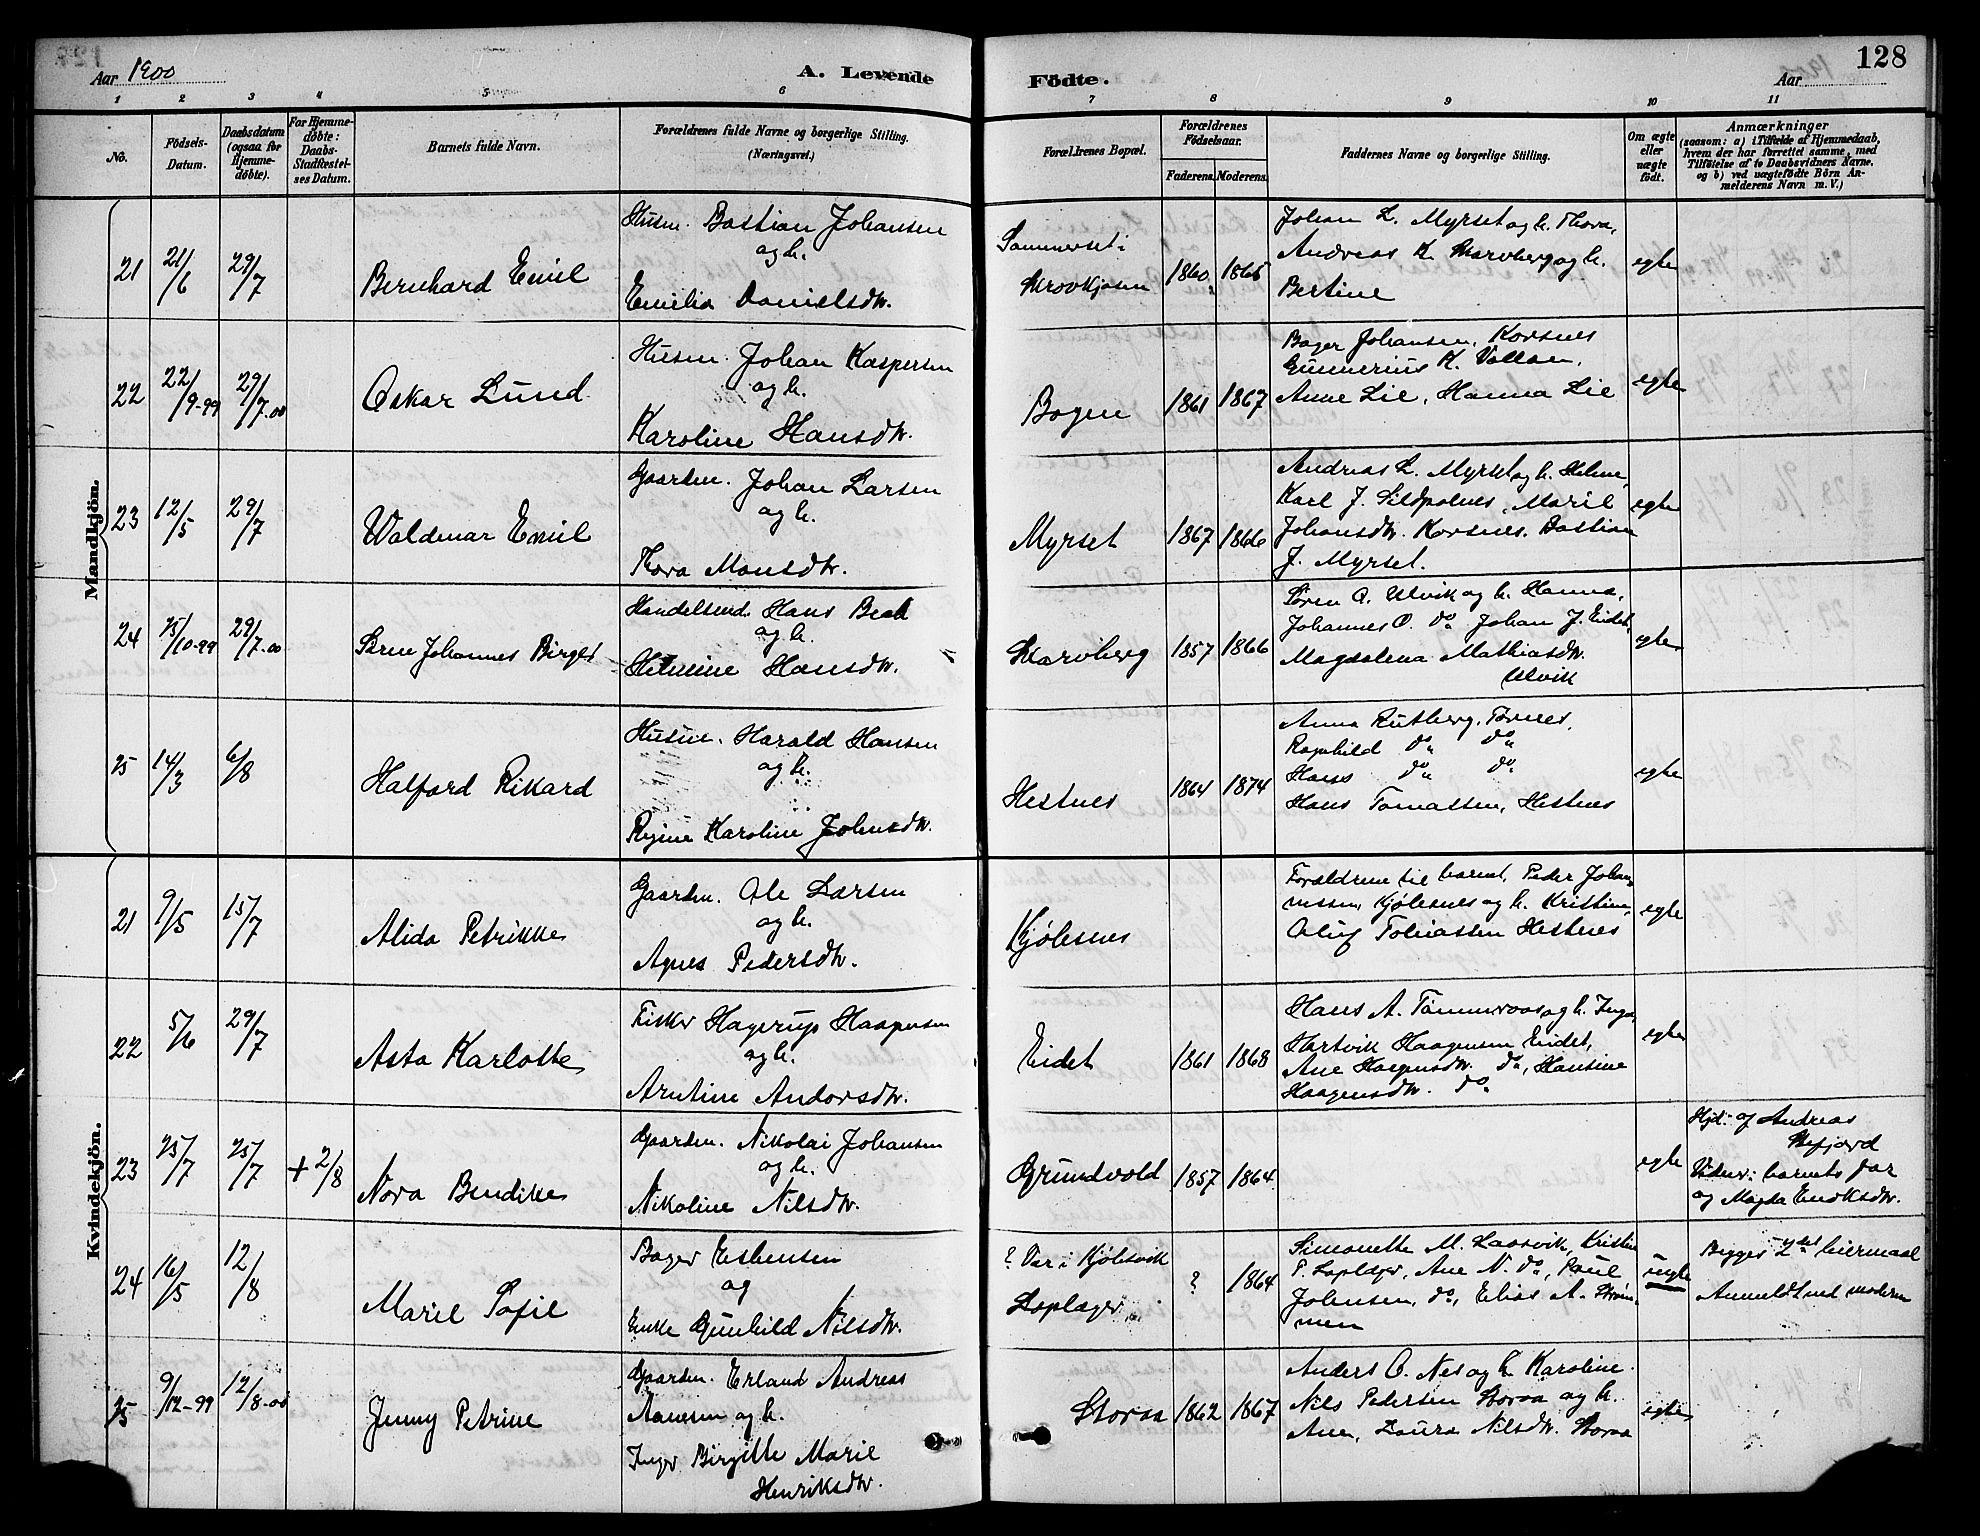 Aar 1900
A. Levende
Födte.
Aar
128
1 2 3 4 5 6 7 8 9 10 11
No.
Födsels-
Datum.
Daabsdatum
(ogsaa for
Hjemme-
döbte).
For Hjemme-
döbte:
Daabs-
Stadfæstel-
ses Datum.
Barnets fulde Navn.
Forældrenes fulde Navne og borgerlige Stilling.
(Næringsvei.)
Forældrenes Bopæl.
Forældrenes
Födselsaar.
Faderens. Moderens.
Faddernes Navne og borgerlige Stilling.
Om ægte
eller
uægte
födt.
Anmærkninger
(saasom: a) i Tilfælde af Hjemmedaab,
hvem der har forrettet samme, med
Tilföielse af to Daabsvidners Navne.
og b) ved uægtefödte Börn An-
melderens Navn m. V.)
Mandkjön.
21 21/6 29/7 Bernhard Emil
Husm. Bastian Johansen
og h.
Emilia Danielsdtr.
Sommerset i
1860 1865
Johan L. Myrset og h. Thora,
Andreas K. Skarvberg og h.
Bertine
egte
22 22/9-99 29/7.00 Oskar Lund
Husm. Johan Kaspersen
og h.
Karoline Hansdtr.
Bogen 1861 1867
Bager Johansen, Korsnes
Gunnerius K. Vallan,
Anne Lie, Hanna Lie
egte
23 12/5 29/7 Waldemar Emil
Gaardm. Johan Larsen
og h.
Thora Monsdtr.
Myrset 1867 1866
Andreas L. Myrset og h. Helene,
Karl J. Sildpolnes, Marie
Johansdtr. Korsnes. Bastian
J. Myrset.
egte
24 25/10-99 29/7.00 Søren Johannes Birger
Handelsmd. Hans Beck
og h.
Helmine Hansdtr.
Skarvberg 1857 1866
Søren O. Ulvik og h. Hanna,
Johannes O. do. Johan J. Eidet,
Magdalena Mathiasdtr.
Ulvik
egte
25 14/3 6/8 Halfard Rikard
Husm. Harald Hansen
og h.
Regine Karoline Johnsdtr.
Hestnes 1864 1874
Anna Rutberg, Tornes,
Ragnhild do. do.
Hans do. do.
Hans Tomassen, Hestnes
egte
Kvindekjön.
21 9/5 15/7 Alida Petrikke
Gaardm. Ole Larsen
og h.
Agnes Pedersdtr.
Kjølesnes
Forældrene til barnet, Peder Johan-
nessen, Kjølesnes og h. Kristine,
Oluf Tobiassen Hestnes
egte
22 5/6 29/7 Asta Karlotte
Fisker Hagerup Haagensen
og h.
Arntine Andorsdtr.
Eidet 1861 1868
Hans A. Tømmeraas og h. Inga,
Hartvik Haagensen Eidet,
Ane Haagensdtr. do., Hansine
Haagensdtr. do.
egte
23 25/7 25/7 + 2/8 Nora Bendikke
Gaardm. Nikolai Johansen
og h.
Nikoline Nilsdtr.
Grundvold 1857 1864
egte
Hjd. af Andreas
Vidner: barnets far
og Magda Enoksdtr.
24 16/5 12/8 Marie Sofie
Bager Esbensen
og
Enke Gunhild Nilsdtr.
? Var i Kjølesvik
Loplager
? 1864
Simonette M. Laasvik, Kristine
P. Loplager, Ane N. do., Paul
Johnsen, do., Elias A. Strøm-
men
uegte
Begges 2det leiermaal
Anmeldt ved moderen
25 9/12-99 12/8-00 Jenny Petrine
Gaardm. Erland Andreas
Aanesen og h.
Inger Birgitte Marie
Henriksdtr.
Storaa 1862 1867
Anders O. Nes og h. Karoline.
Nils Pedersen Storaa og h.
Ane, Laura Nilsdtr. Storaa
egte